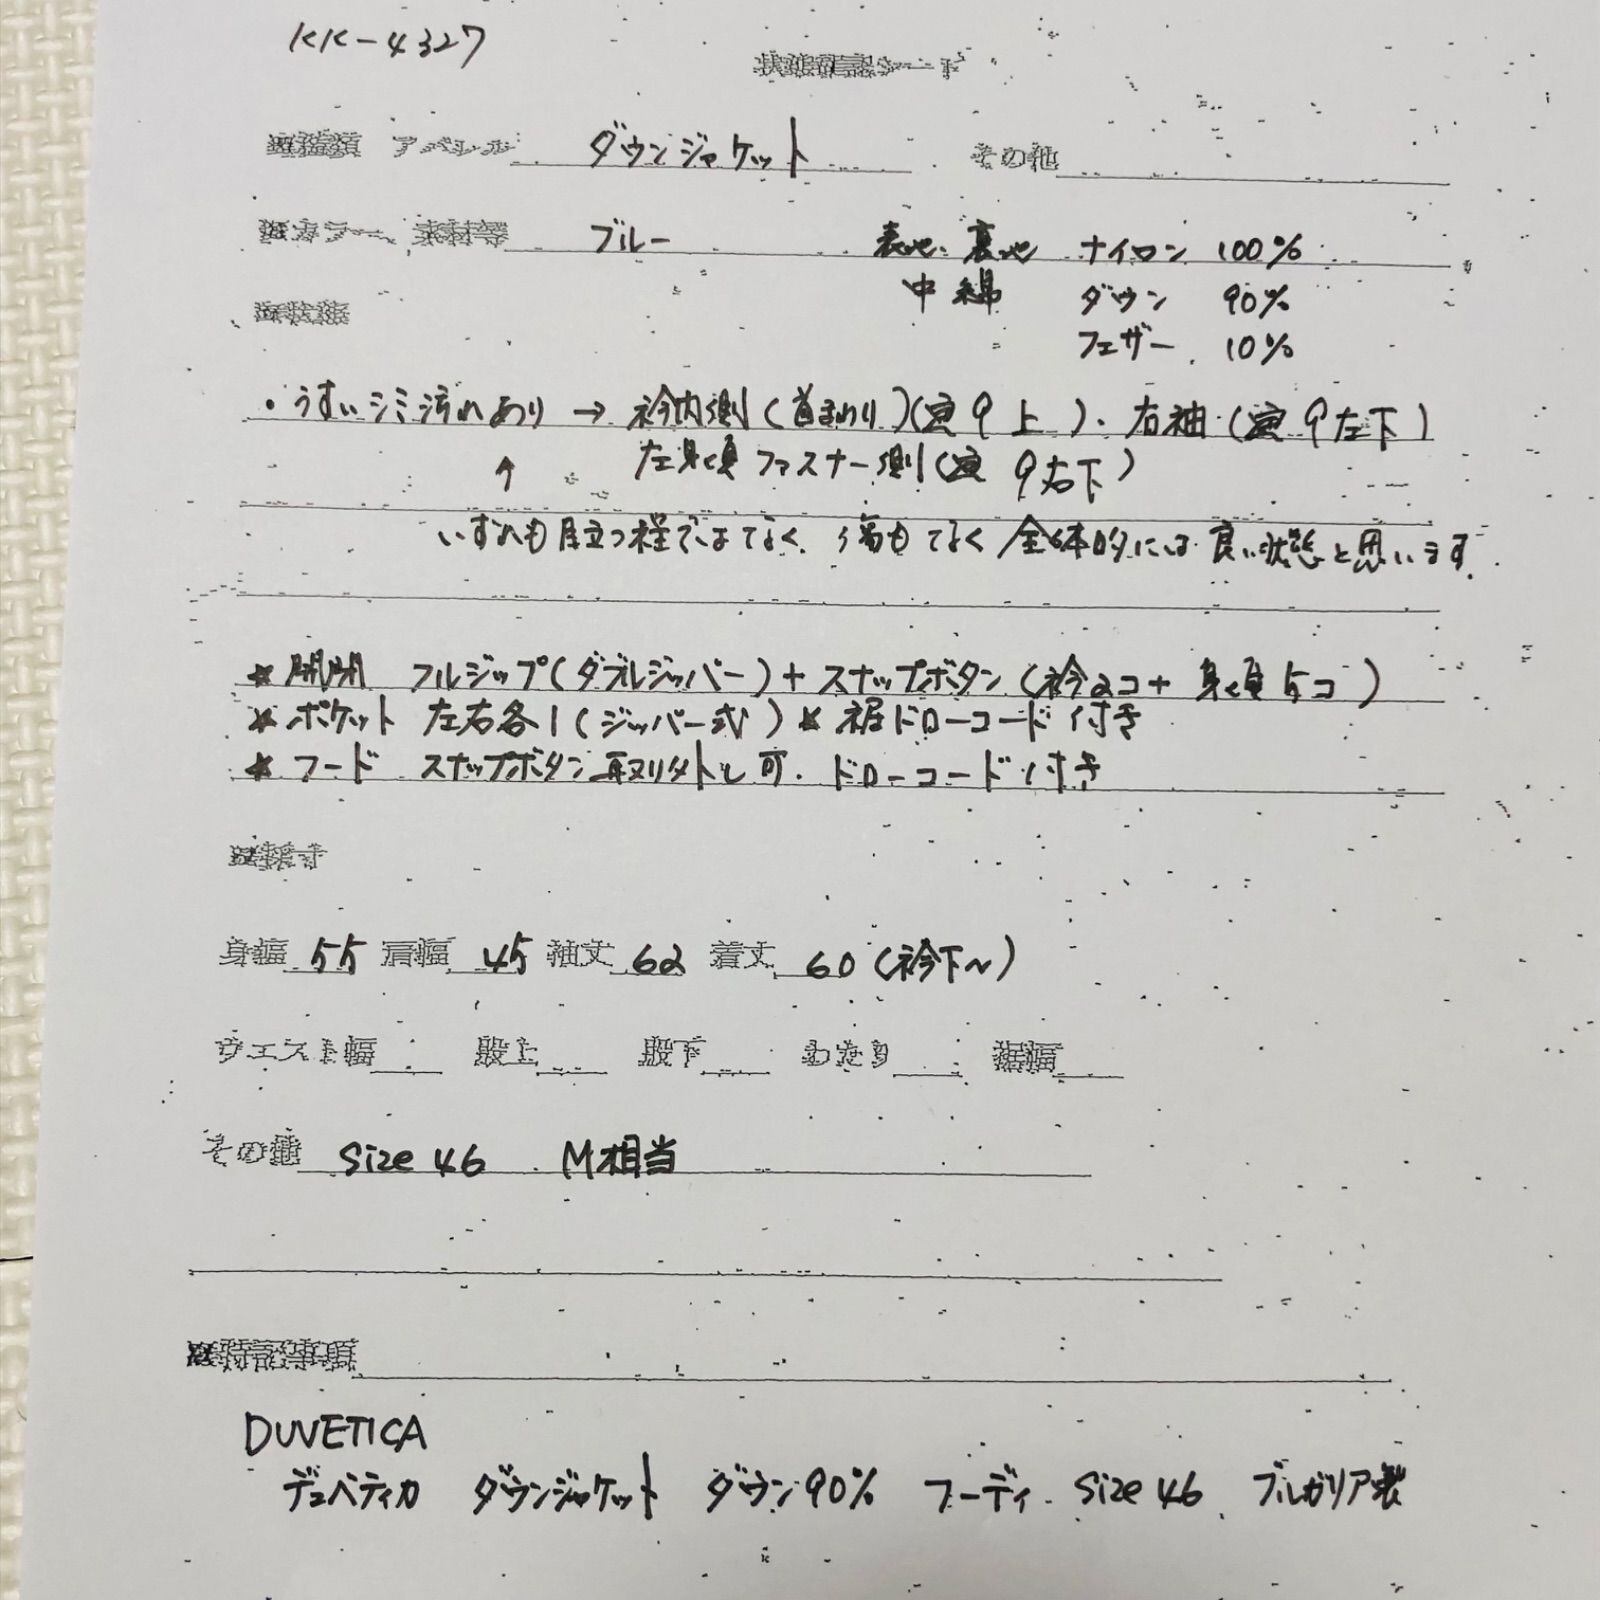 KK-4327
状態確認シート
■種類 アパレル ダウンジャケット その他
■カラー、素材等 ブルー 表地・裏地 ナイロン 100%
中綿 ダウン 90%
フェザー 10%
■状態
・うすいシミ汚れあり → 衿内側(首まわり)(写9上)・右袖(写9左下)
↑ 左身頃ファスナー側(写9右下)
いずれも目立つ程ではなく、傷もなく全体的には良い状態と思います。
★開閉 フルジップ(ダブルジッパー)+スナップボタン(衿2コ+身頃5コ)
★ポケット 左右各1(ジッパー式) ★裾ドローコード付き
★フード スナップボタン取り外し可・ドローコード付き
■採寸
身幅 55 肩幅 45 袖丈 62 着丈 60(衿下~)
ウエスト幅 股上 股下 わたり 裾幅
その他 size 46 M相当
■特記事項
DUVETICA
デュベティカ ダウンジャケット ダウン90% フーディ size 46 ブルガリア製